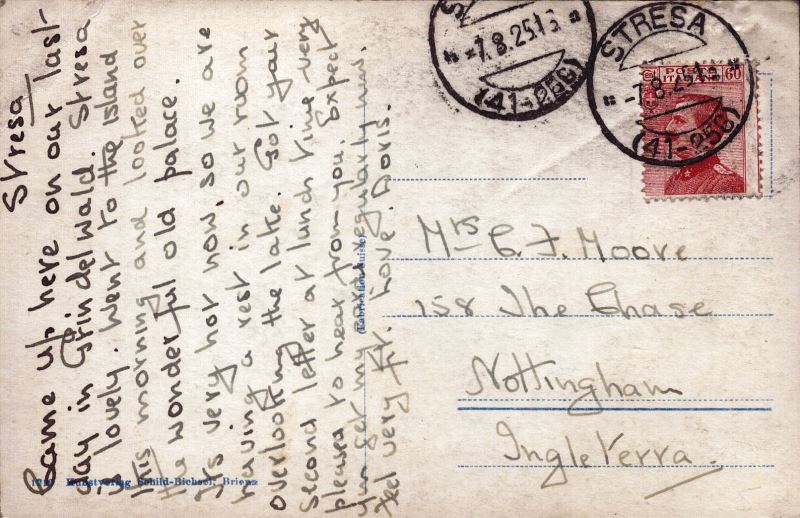 Stresa
Came up here on our last
day in Grindelwald. Stresa
is lovely. Went to the island
this morning and looked over
the wonderful old palace.
It's very hot now, so we are
having a rest in our room
overlooking the lake. Got your
second letter at lunch time very
pleased to hear from you. Expect
you get my cards regularly now.
Feel very fit. Love. Doris.
(Fabrication suisse)
Kunstverlag Schild-Bichsel, Brienz
-7.8.25.15
(41-256)
STRESA
-7.8.25.15
(41-256)
POSTE
ITALIANE
60
Mrs C. F. Moore
158 The Chase
Nottingham
Ingleterra.